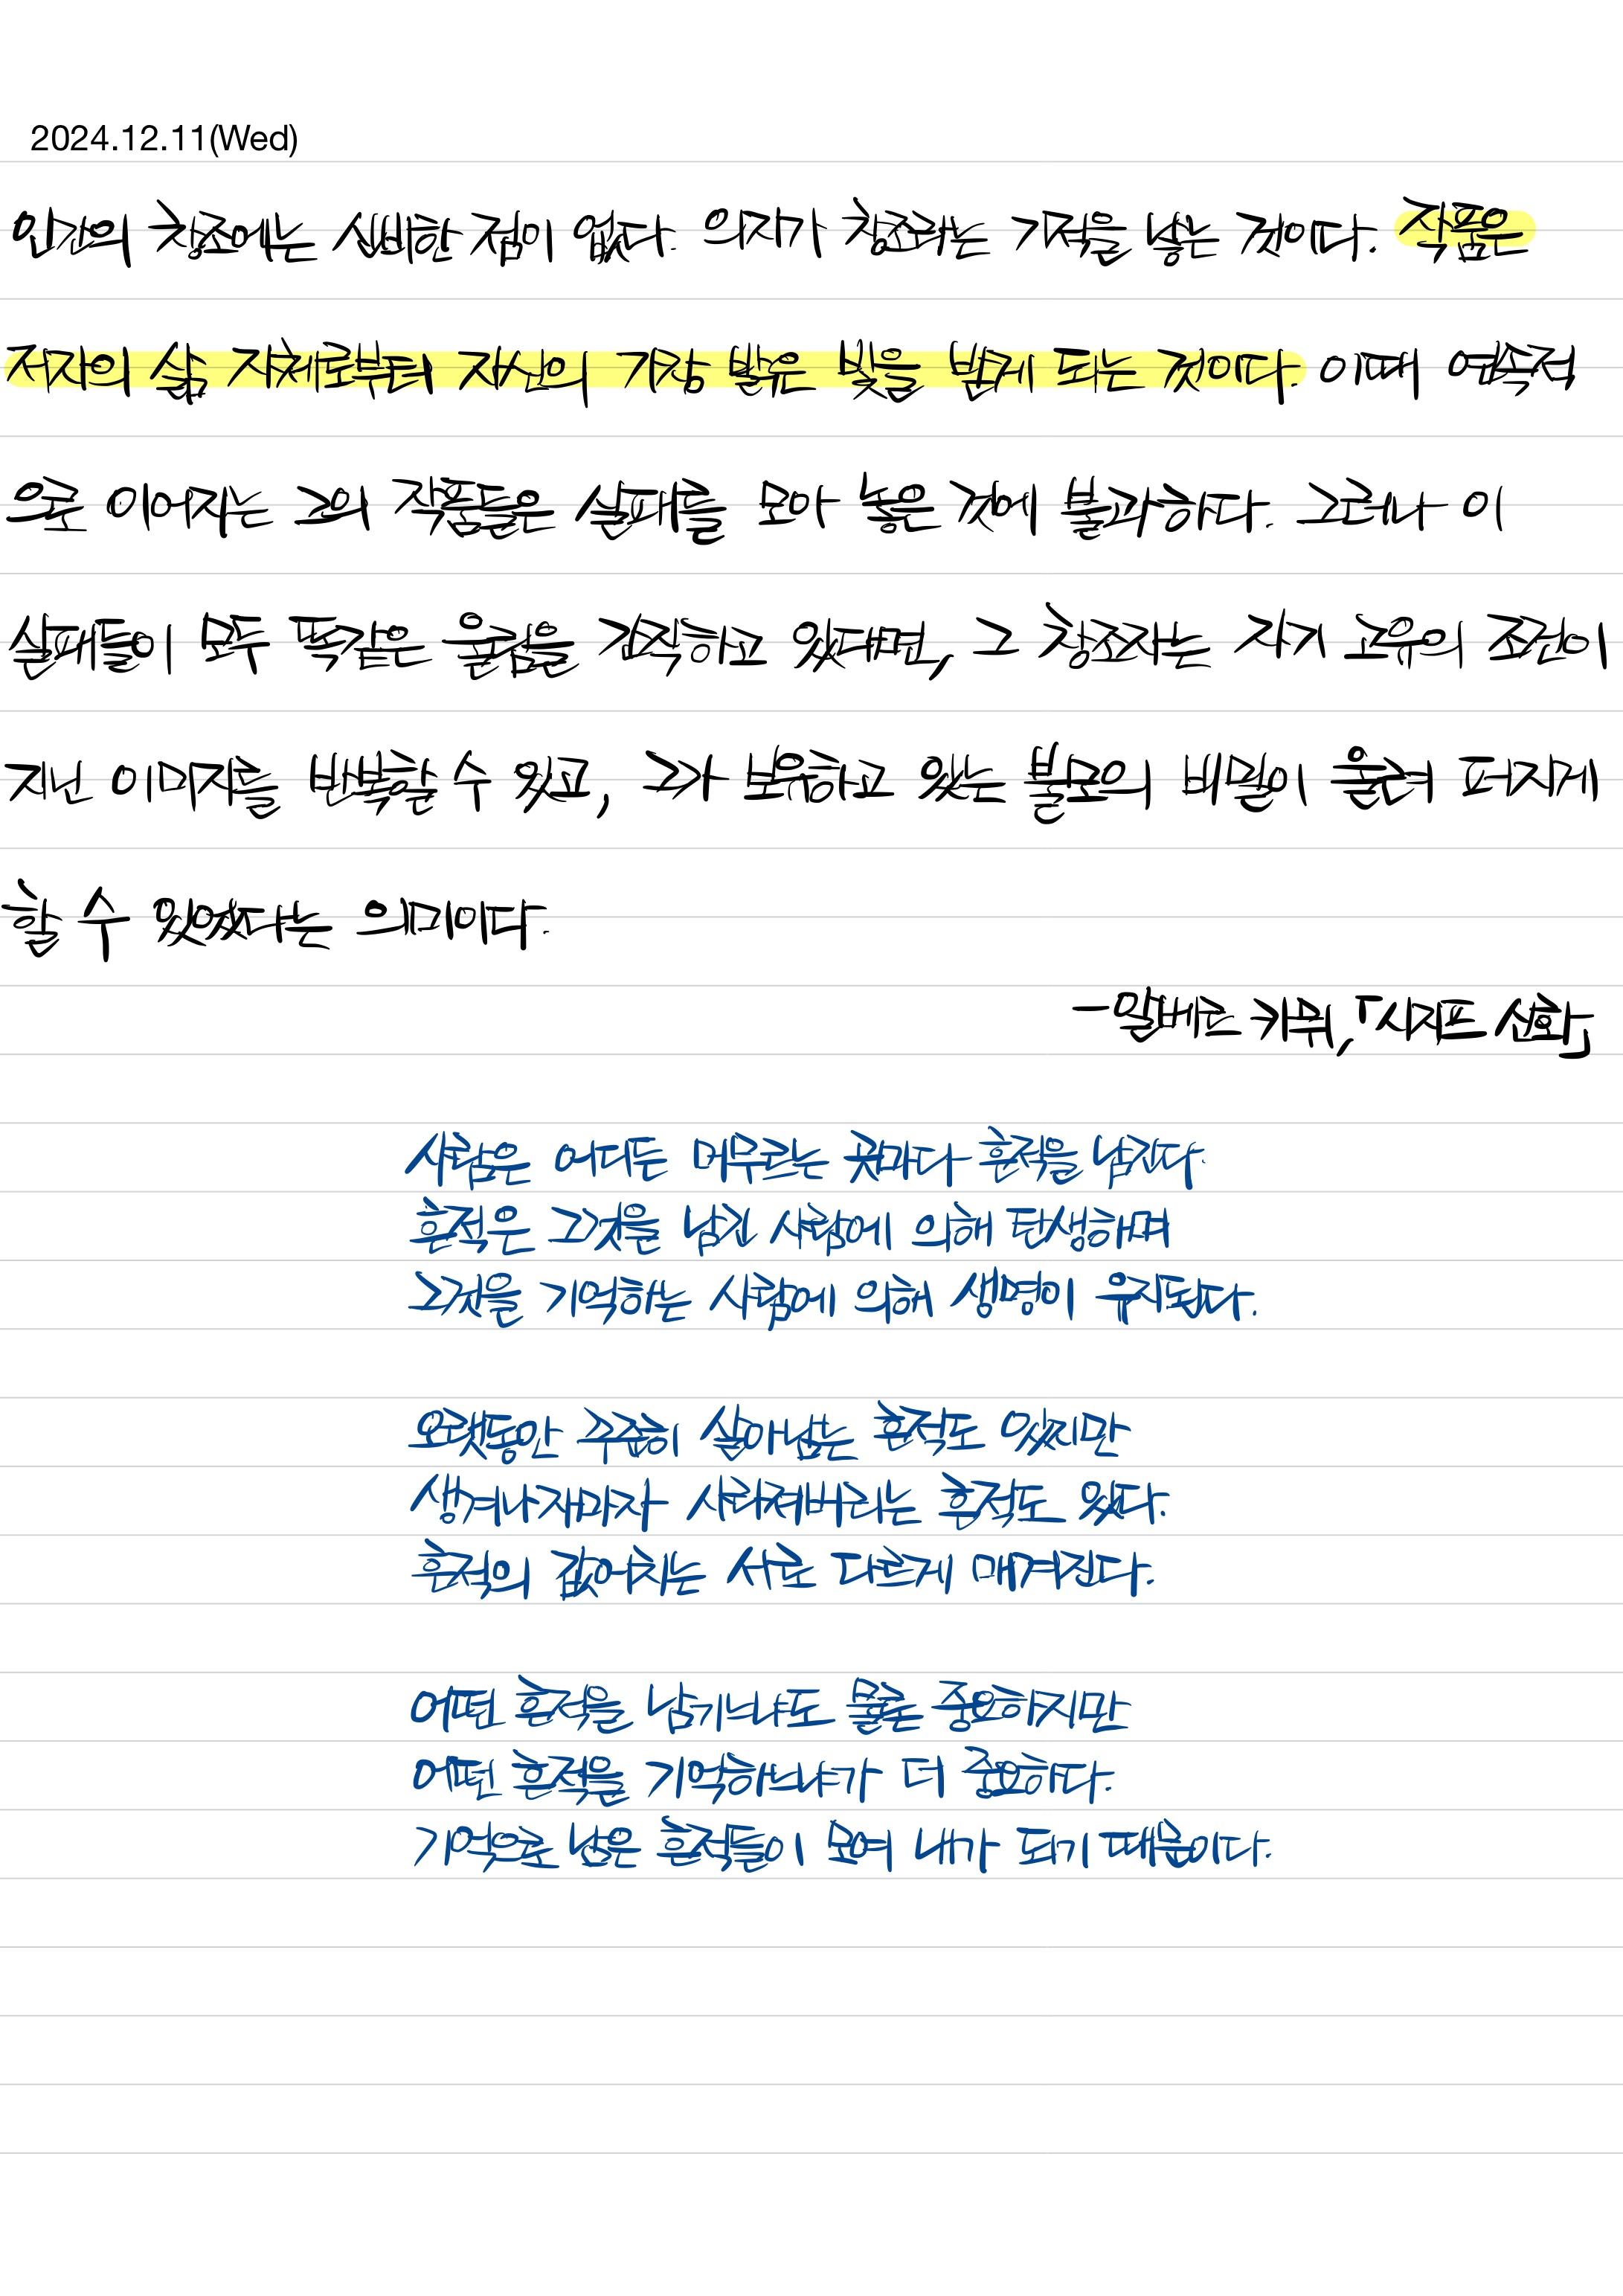 2024.12.11(Wed)
인간의 창조에는 신비한 점이 없다. 의지가 창조라는 기적을 낳는 것이다. 작품은
저자의 삶 자체로부터 자신의 가장 밝은 빛을 받게 되는 것이다. 이때 연속적
으로 이어지는 그의 작품들은 실패들을 모아 놓은 것에 불과하다. 그러나 이
실패들이 모두 똑같은 울림을 간직하고 있다면, 그 창조자는 자기 고유의 조건이
지닌 이미지를 반복할 수 있고, 그가 보유하고 있는 불모의 비밀이 울려 퍼지게
할 수 있었다는 의미이다.
-알베르 카뮈,「시지프 신화」
사람은 어디든 머무르는 곳마다 흔적을 남긴다.
흔적은 그것을 남긴 사람에 의해 탄생하며
그것을 기억하는 사람에 의해 생명이 유지된다.
오랫동안 꾸준히 살아남는 흔적도 있지만
생겨나자마자 사라져버리는 흔적도 있다.
흔적의 값어치는 서로 다르게 매겨진다.
어떤 흔적을 남기느냐도 물론 중요하지만
어떤 흔적을 기억하느냐가 더 중요하다.
기억으로 남은 흔적들이 모여 내가 되기 때문이다.